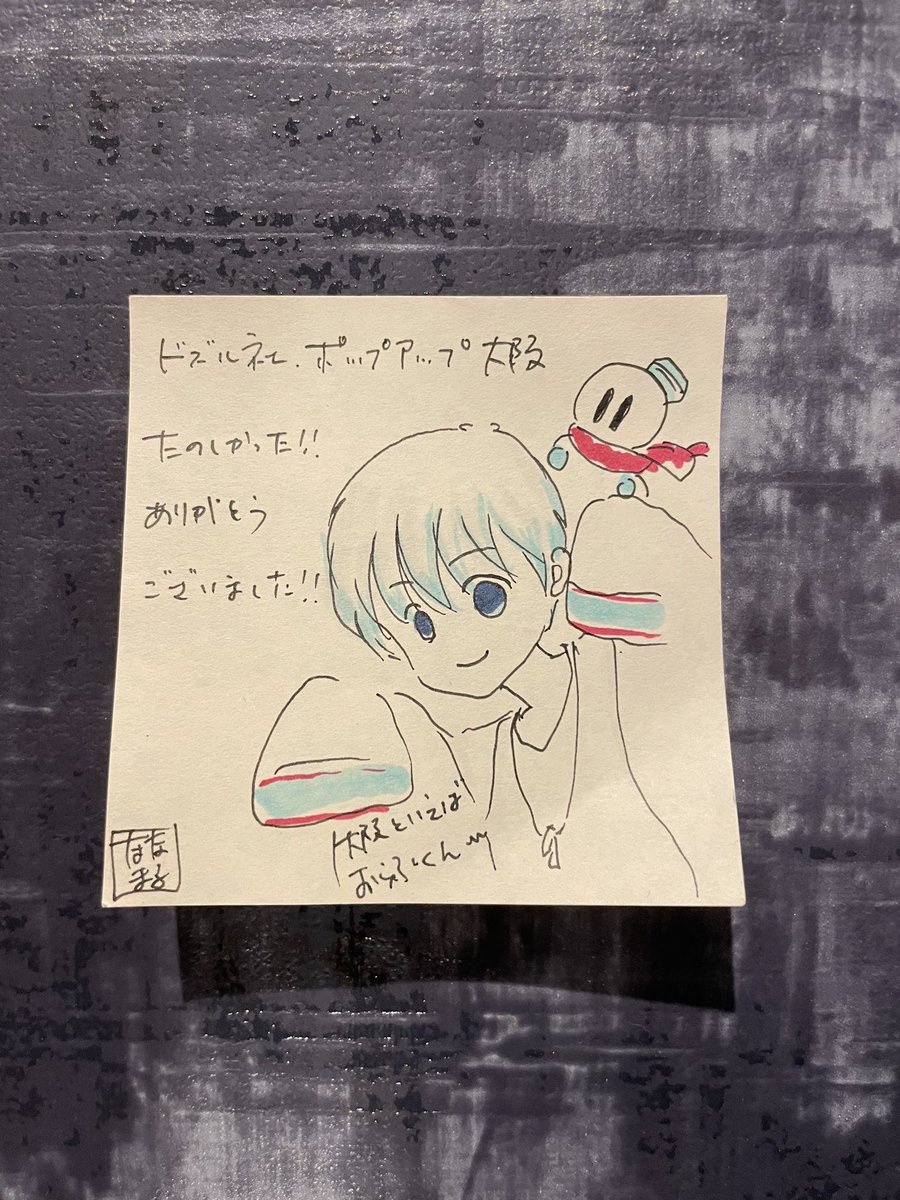 ドズル社.ポップアップ大阪
たのしかった!!
ありがとう
ございました!!
大阪といえば
おらふくん
はな
まる